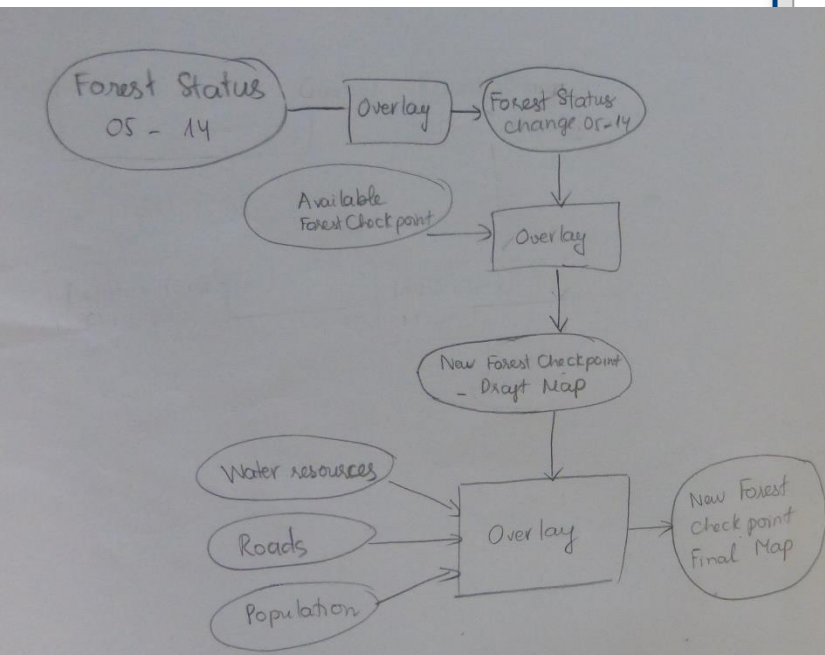 Forest Status
05 - 14
Overlay
Forest Status
change 05-14
Available
Forest Checkpoint
Overlay
New Forest Checkpoint
- Draft Map
Water resources
Roads
Population
Overlay
New Forest
Check point
Final Map